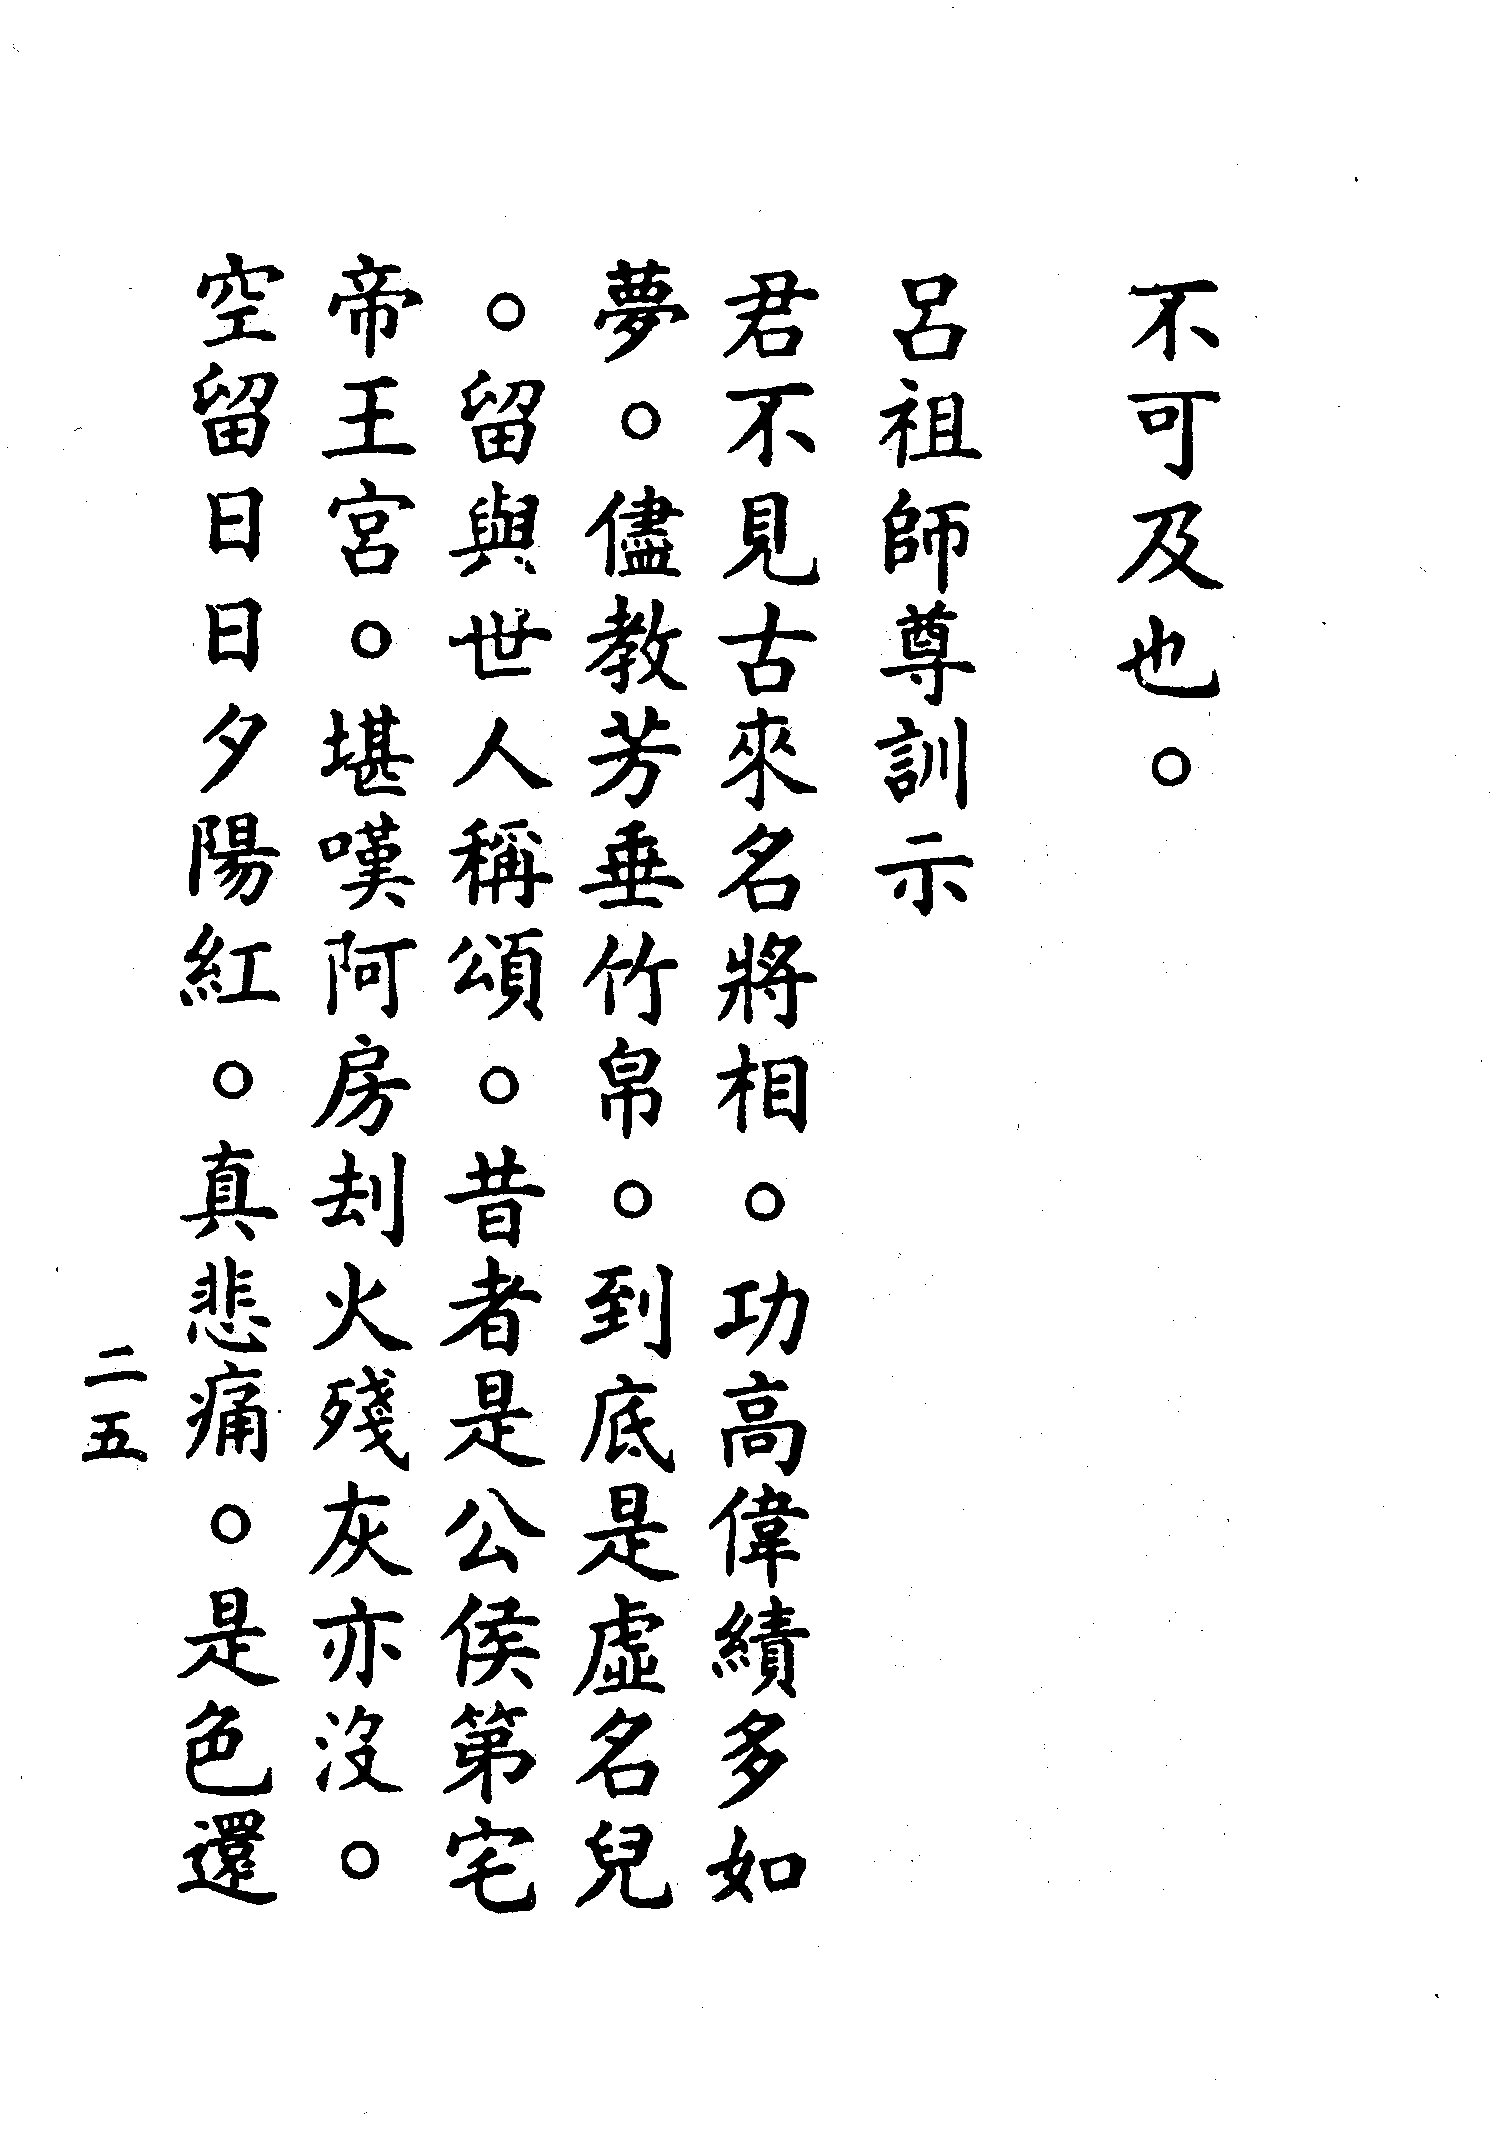 不可及也。
呂祖師尊訓示
君不見古來名將相。功高偉績多如
夢。儘教芳垂竹帛。到底是虛名兒
。留與世人稱頌。昔者是公侯第宅
帝王宮。堪嘆阿房刦火殘灰亦沒。
空留日日夕陽紅。真悲痛。是色還
二五